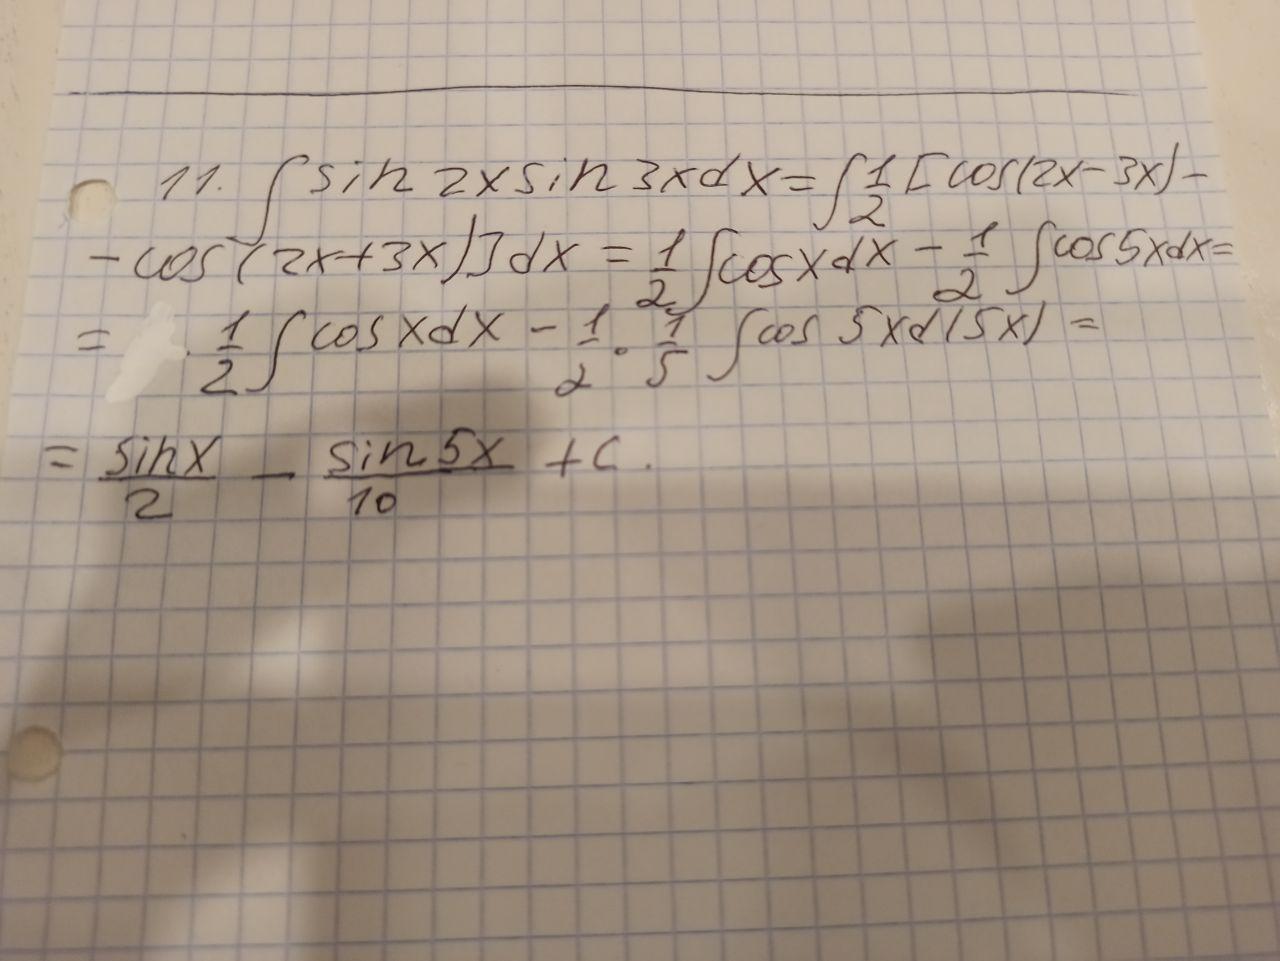 11. ∫ sin 2x sin 3x dx = ∫ 1/2 [cos(2x - 3x) -
- cos(2x + 3x)] dx = 1/2 ∫ cos x dx - 1/2 ∫ cos 5x dx =
= 1/2 ∫ cos x dx - 1/2 · 1/5 ∫ cos 5x d(5x) =
= sin x/2 - sin 5x/10 + C.